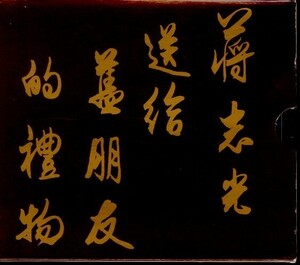 蔣志光
送給
舊朋友
的禮物